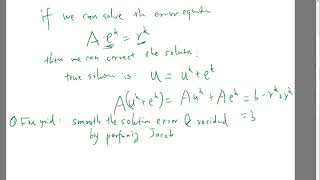 if we can solve th error equatn
A e^k = r^k
then we can correct the solutn:
true solution is u = u^k + e^k
A(u^k + e^k) = A u^k + A e^k = b - r^k + r^k
= b
① Fine grid: smooth the solution error & residual
by perfoming Jacob